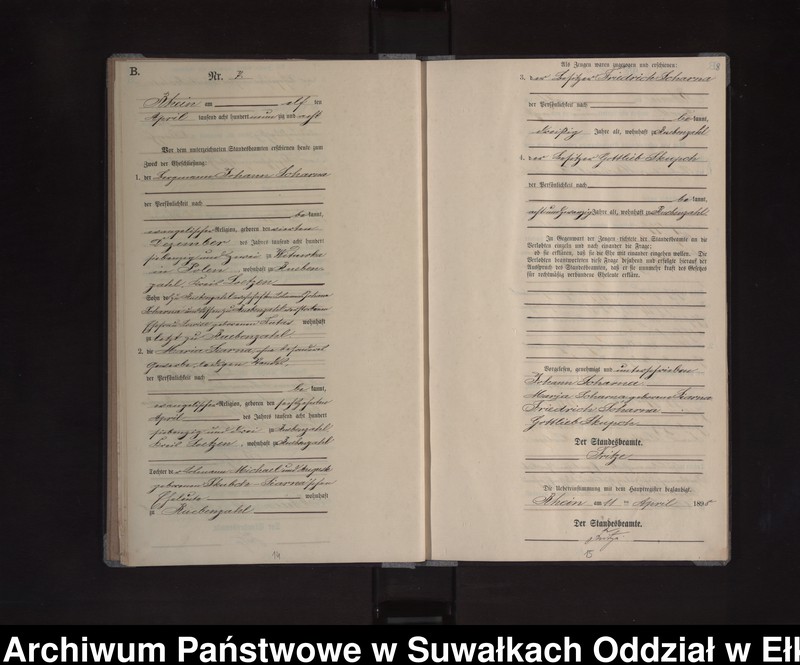 B.
Nr.
Rhein am elf ten
April tausend acht hundert neunzig und acht
Vor dem unterzeichneten Standesbeamten erschienen heute zum
Zweck der Eheschließung:
1. der Johann Scharna
der Persönlichkeit nach
be kannt,
evangelischer Religion, geboren den vierten
Dezember des Jahres tausend acht hundert
siebenzig und zwei zu
in Polen, wohnhaft zu Rueben-
zahl, Kreis Loetzen
Sohn des zu Ruebenzahl
Scharna
geborenen wohnhaft
zu letzt zu Ruebenzahl.
2. die Maria
Gewerbe, ledigen Standes
der Persönlichkeit nach
be kannt,
evangelischer Religion, geboren den
April des Jahres tausend acht hundert
siebenzig und drei zu Ruebenzahl,
Kreis Loetzen, wohnhaft zu Ruebenzahl
Tochter der Michael und
geborenen
Eheleute wohnhaft
zu Ruebenzahl
14
Als Zeugen waren zugezogen und erschienen:
3. der Besitzer Friedrich Scharna
der Persönlichkeit nach
be kannt,
dreißig Jahre alt, wohnhaft zu Ruebenzahl
4. der Besitzer Gottlieb Skupch
der Persönlichkeit nach
be kannt,
acht und zwanzig Jahre alt, wohnhaft zu Ruebenzahl.
In Gegenwart der Zeugen richtete der Standesbeamte an die
Verlobten einzeln und nach einander die Frage:
ob sie erklären, daß sie die Ehe mit einander eingehen wollen. Die
Verlobten beantworteten diese Frage bejahend und erfolgte hierauf der
Ausspruch des Standesbeamten, daß er sie nunmehr kraft des Gesetzes
für rechtmäßig verbundene Eheleute erkläre.
Vorgelesen, genehmigt und unterschrieben
Johann Scharna
Marija Scharna geborene
Friedrich Scharna
Gottlieb Skupch
Der Standesbeamte.
Fritze
Die Uebereinstimmung mit dem Hauptregister beglaubigt.
Rhein am 11 ten April 1898
Der Standesbeamte.
Fritze
15
Archiwum Państwowe w Suwałkach Oddział w Eł